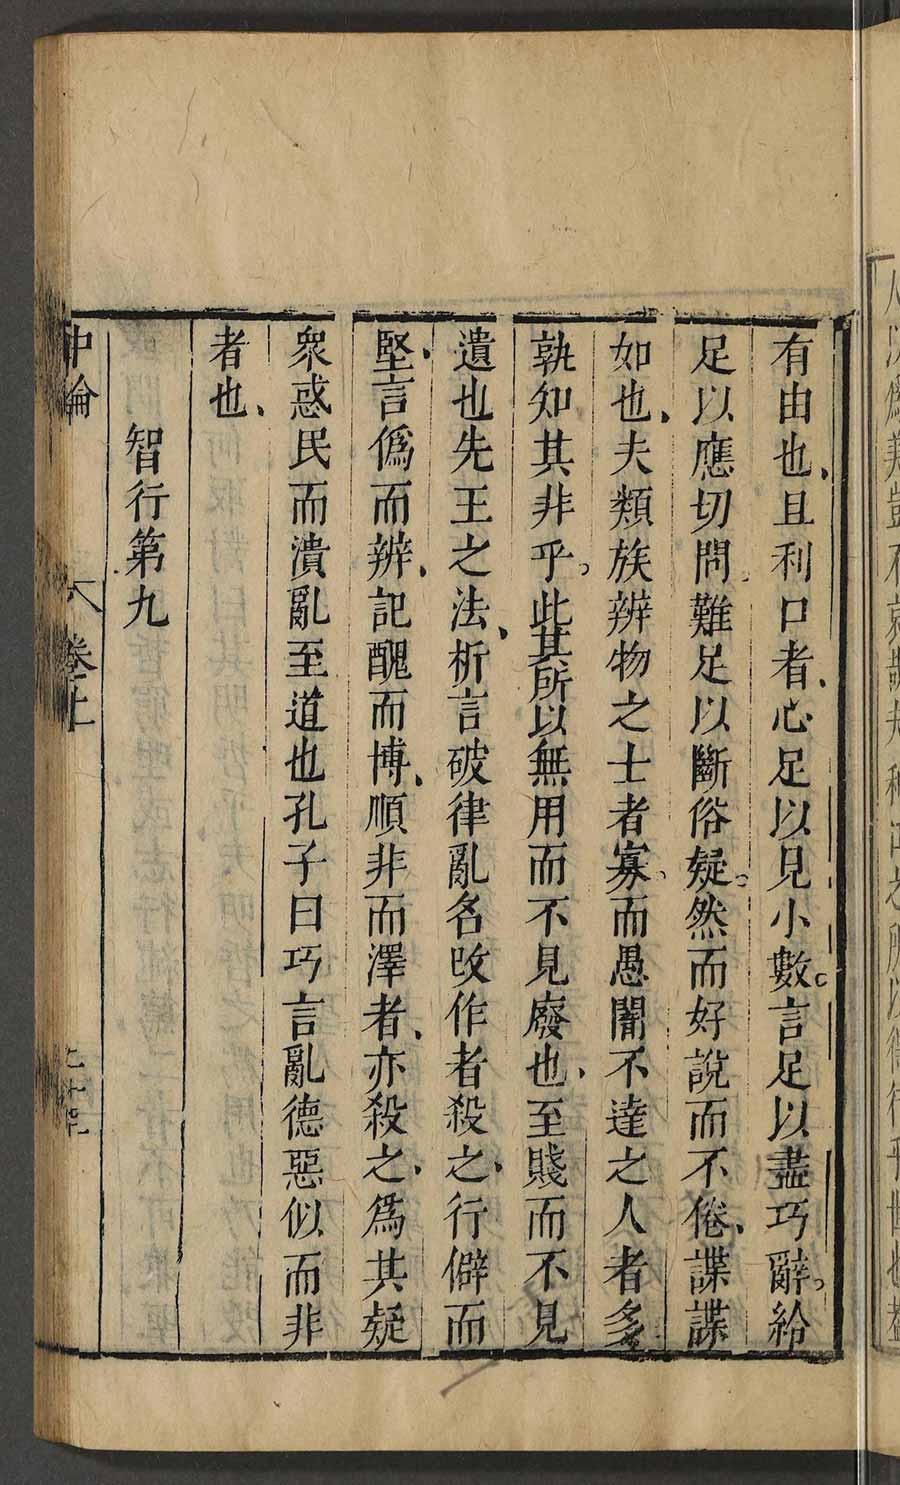 有由也、且利口者、心足以見小數。言足以盡巧辭。給
足以應切問。難足以斷俗疑。然而好說而不倦、諜諜
如也、夫類族辨物之士者寡。而愚闇不達之人者多
孰知其非乎。此其所以無用而不見廢也、至賤而不見
遺也先王之法、析言破律亂名改作者殺之、行僻而
堅、言僞而辨、記醜而博、順非而澤者、亦殺之、爲其疑
衆惑民而潰亂至道也孔子曰巧言亂德惡似而非
者也、
智行第九
中論
卷上